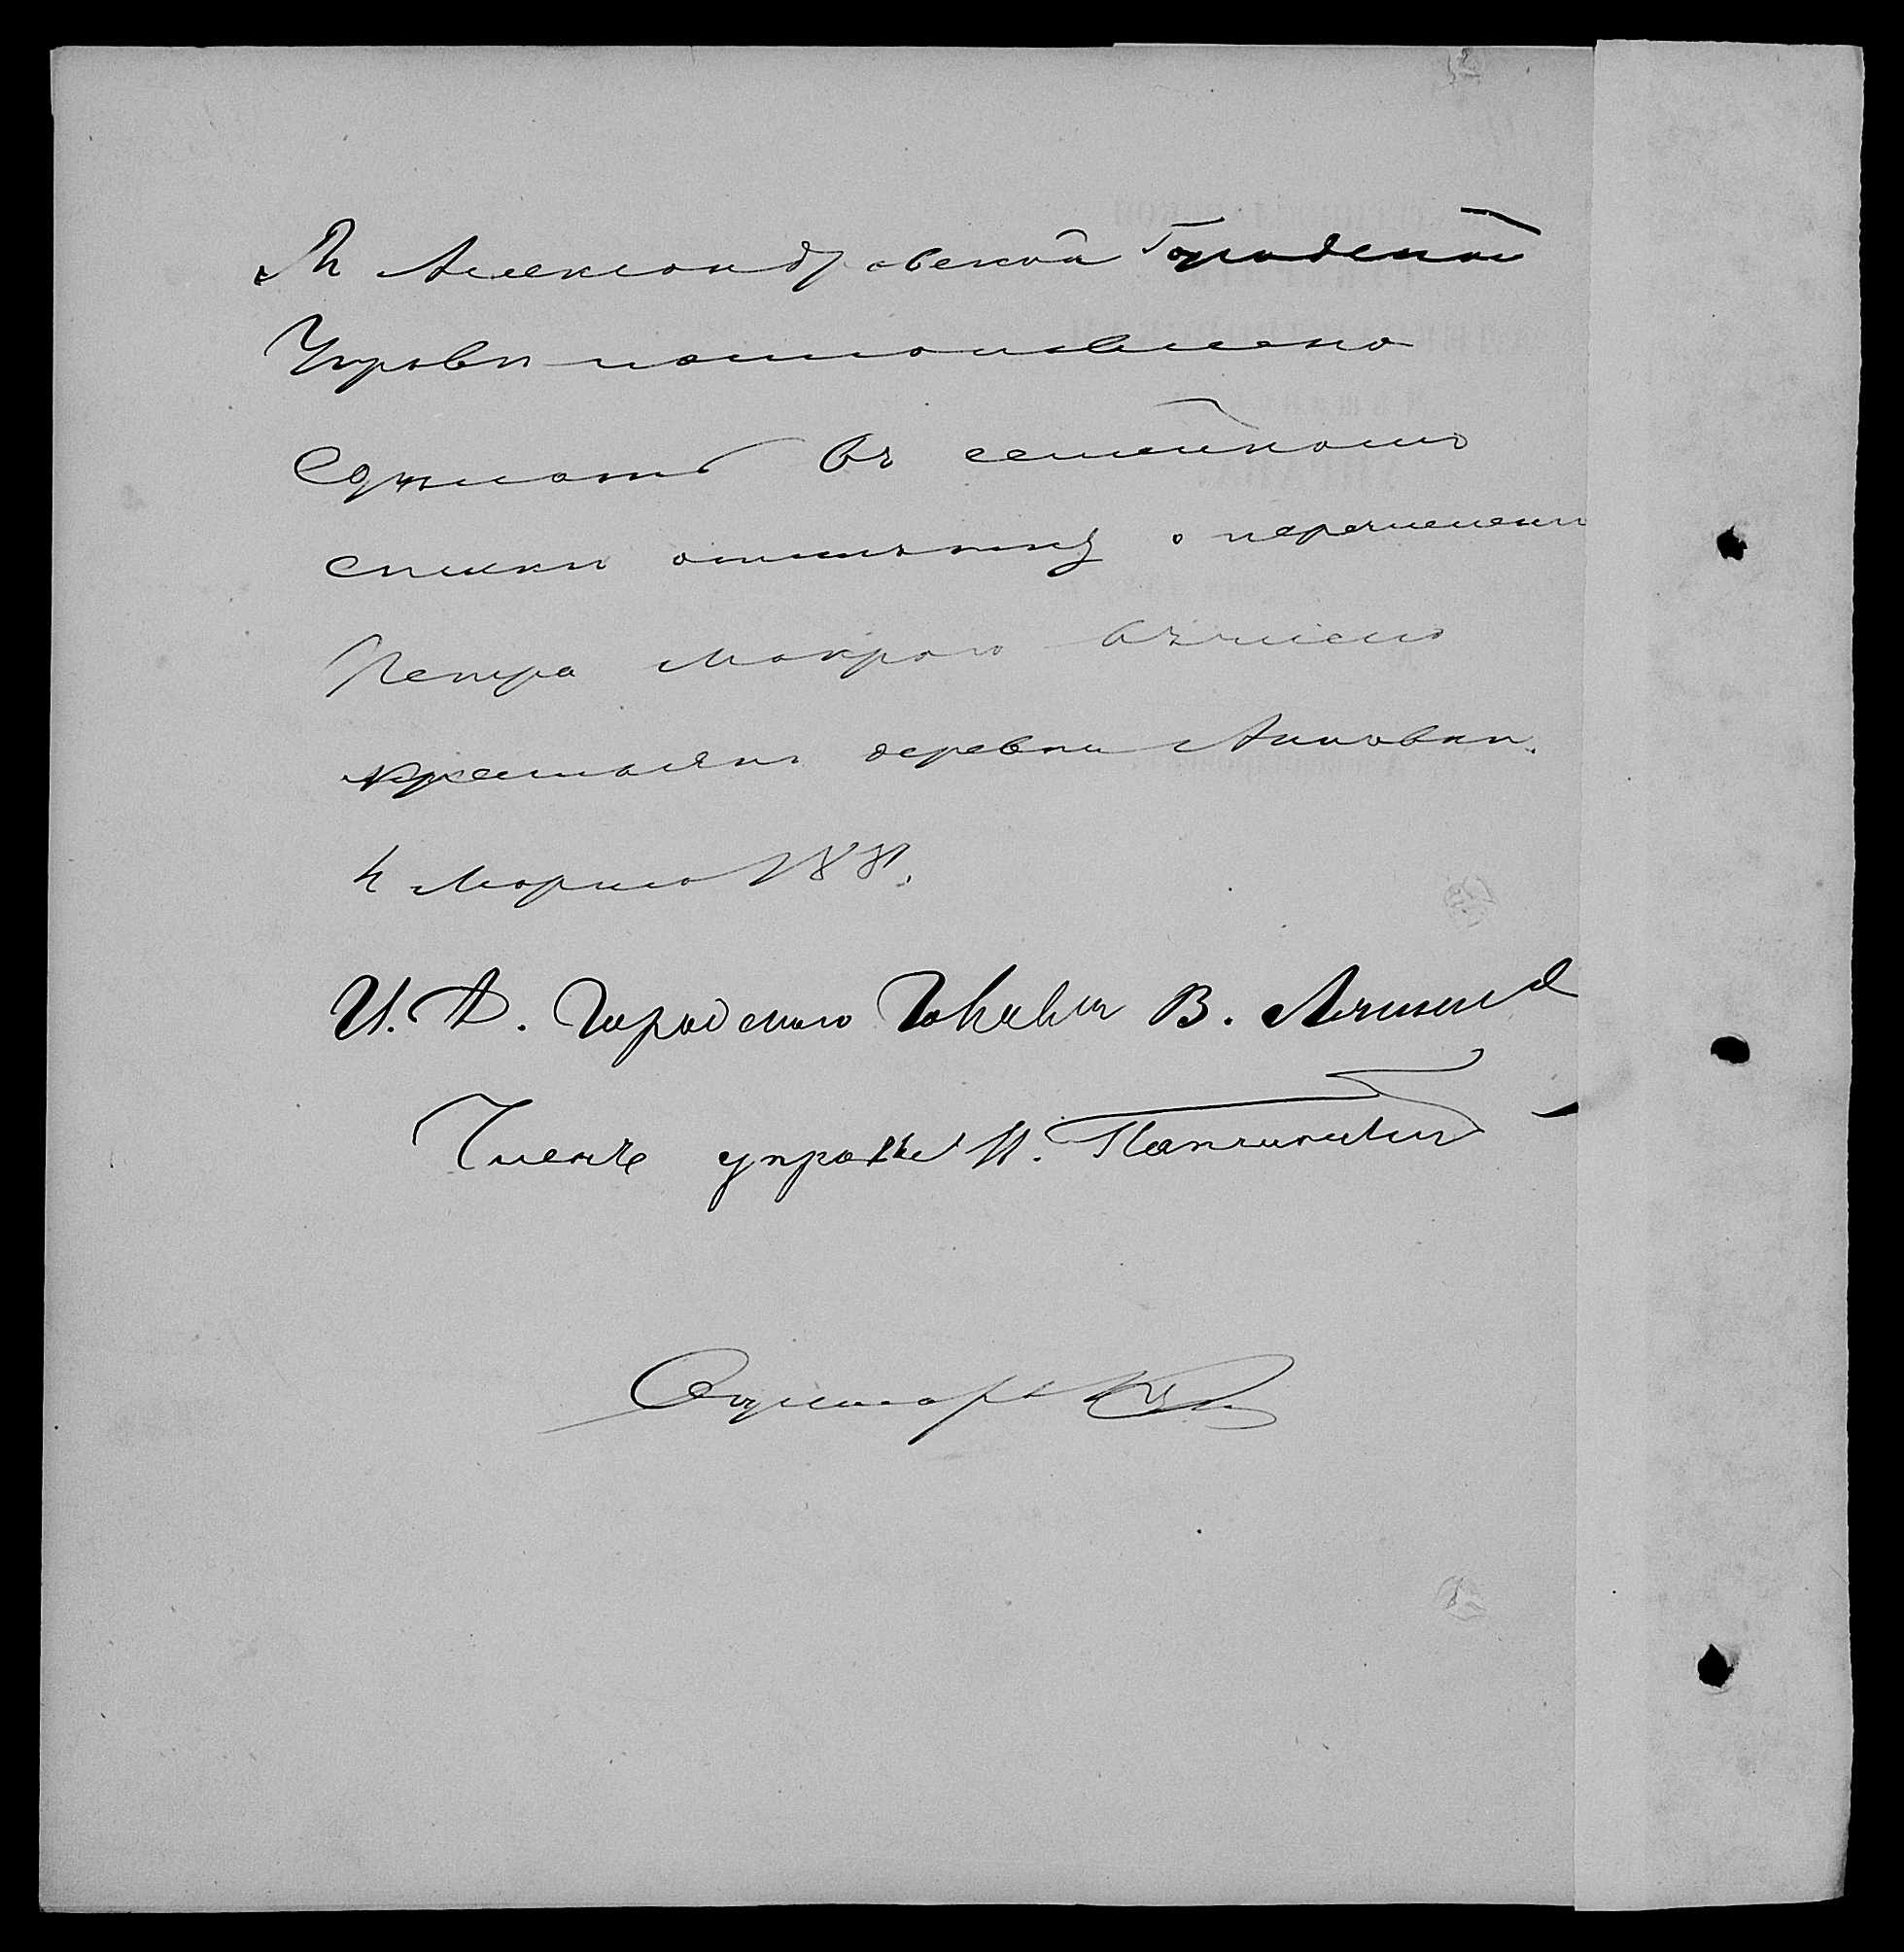 Въ Александровской Городской
Управѣ постановлено
Сдѣлать въ семейномъ
спискѣ отмѣтку о перечислении
Петра Мокраго въ число
крестьянъ деревни Анновки.
4 Марта 188
И. Д. Городского Головы В.
Членъ управы И.
Секретарь